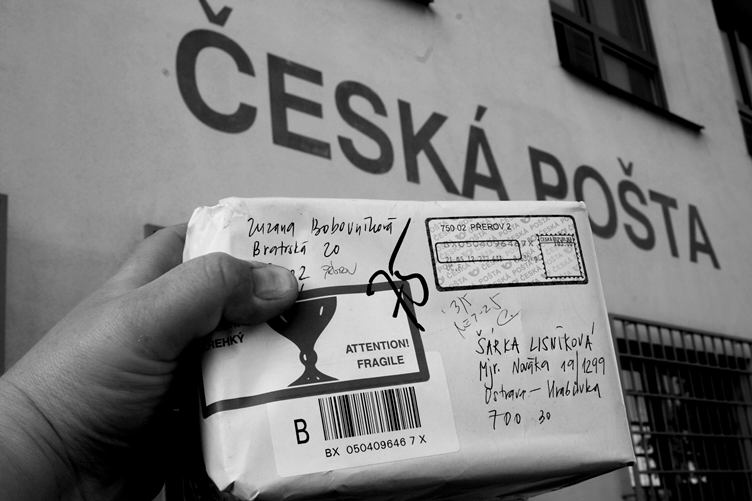 ČESKÁ POŠTA
Zuzana Bobovníková
Bratrská 20
02 PŘEROV
750 02 PŘEROV 2
BX0504096467X
ČESKÁ REPUBLIKA
KŘEHKÝ
ATTENTION!
FRAGILE
B
BX 050409646 7 X
ŠÁRKA LISNÍKOVÁ
Mjr. Nováka 19/1299
Ostrava - Hrabůvka
700 30